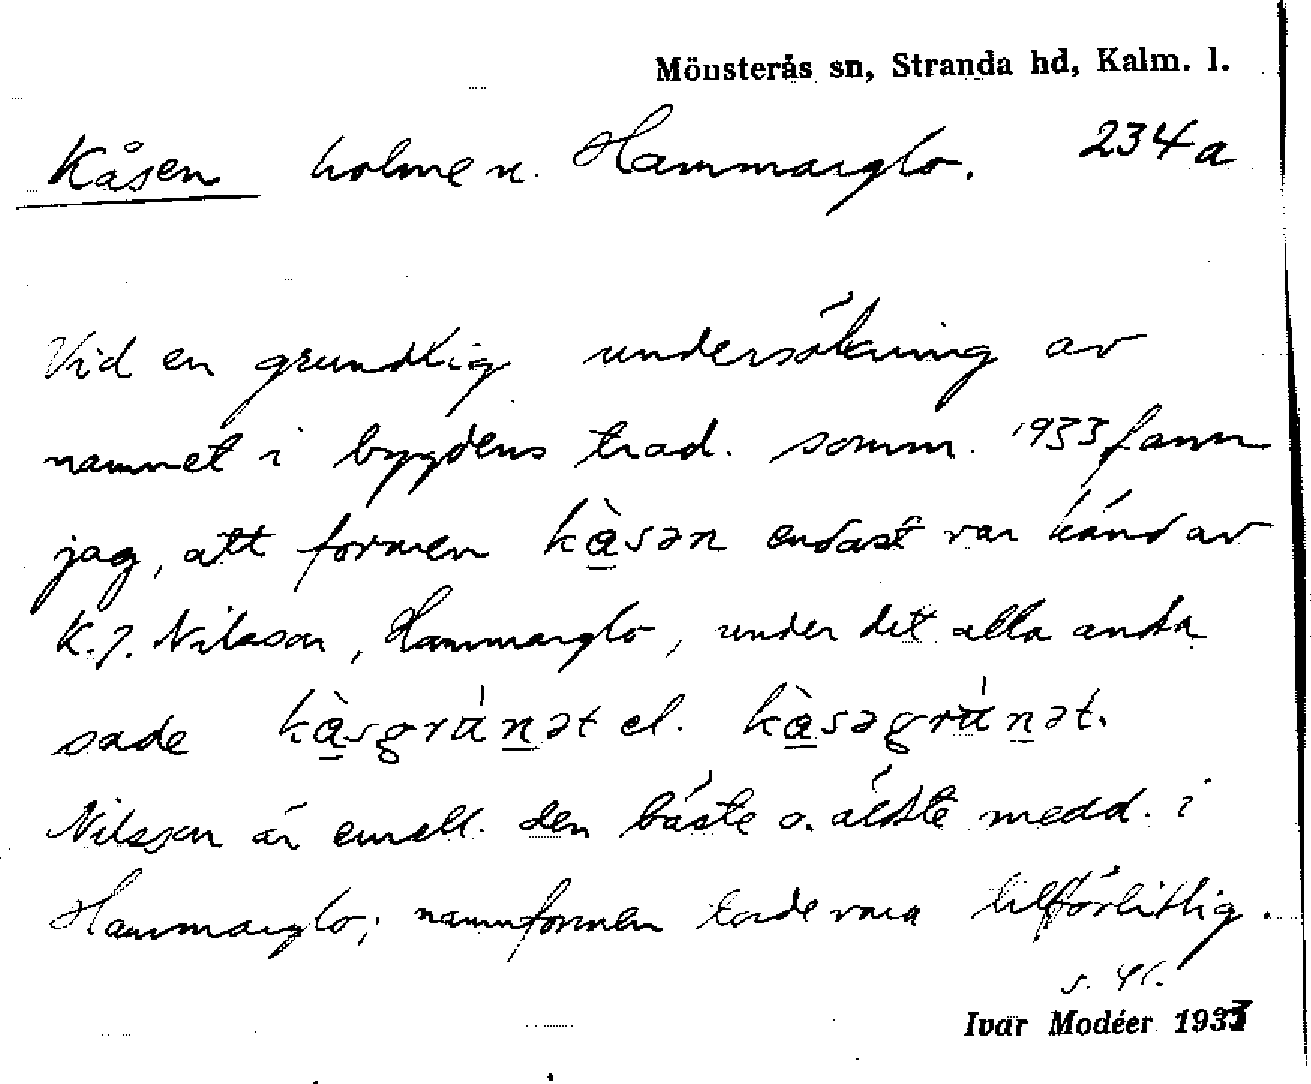 Mönsterås sn, Stranda hd, Kalm. l.
Kåsen holme n. Hammarglo. 234a
Vid en grundlig undersökning av
namnet i bygdens trad. somm. 1933 fann
jag, att formen kàsən endast var känd av
K. J. Nilsson, Hammarglo, under det alla andra
sade kàsgrúnət el. kàsəgrúnət.
Nilsson är emell. den bäste o. äldste medd. i
Hammarglo; namnformen torde vara tillförlitlig.
s. 41.
Ivar Modéer 1933